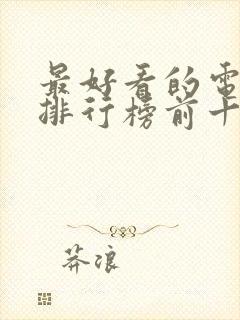 最好看的電
排行榜前十
莽浪